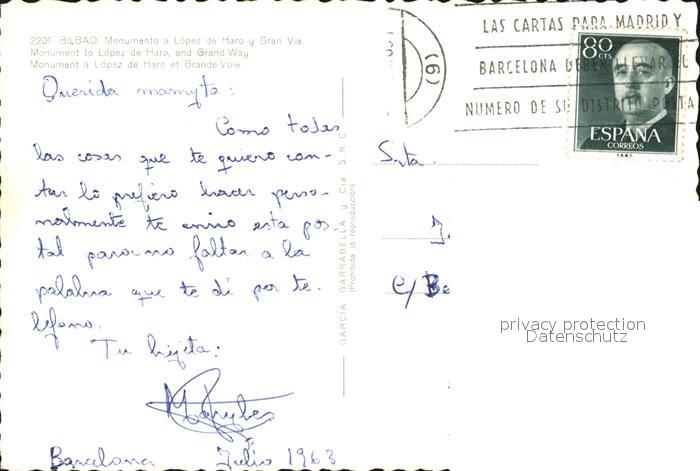 2201 BILBAO. Monumento a López de Haro y Gran Via.
Monument to López de Haro, and Grand-Way
Monument à López de Haro et Grande-Voie.
Querida mamyta:
Como todas
las cosas que te quiero con-
tar lo prefiero hacer perso-
nalmente te envio esta pos-
tal para no faltar a la
palabra que te dí por te-
léfono.
Tu hijita:
Barcelona Julio 1963
GARCIA GARRABELLA y Cia. S.R.C.
(Prohibida la reproducción)
(6)
LAS CARTAS PARA MADRID Y
BARCELONA DEBEN LLEVAR EL
NUMERO DE SU DISTRITO POSTAL
80
CTS
ESPAÑA
CORREOS
F.N.M.T.
Srta.
J.
C/ Be
privacy protection
Datenschutz